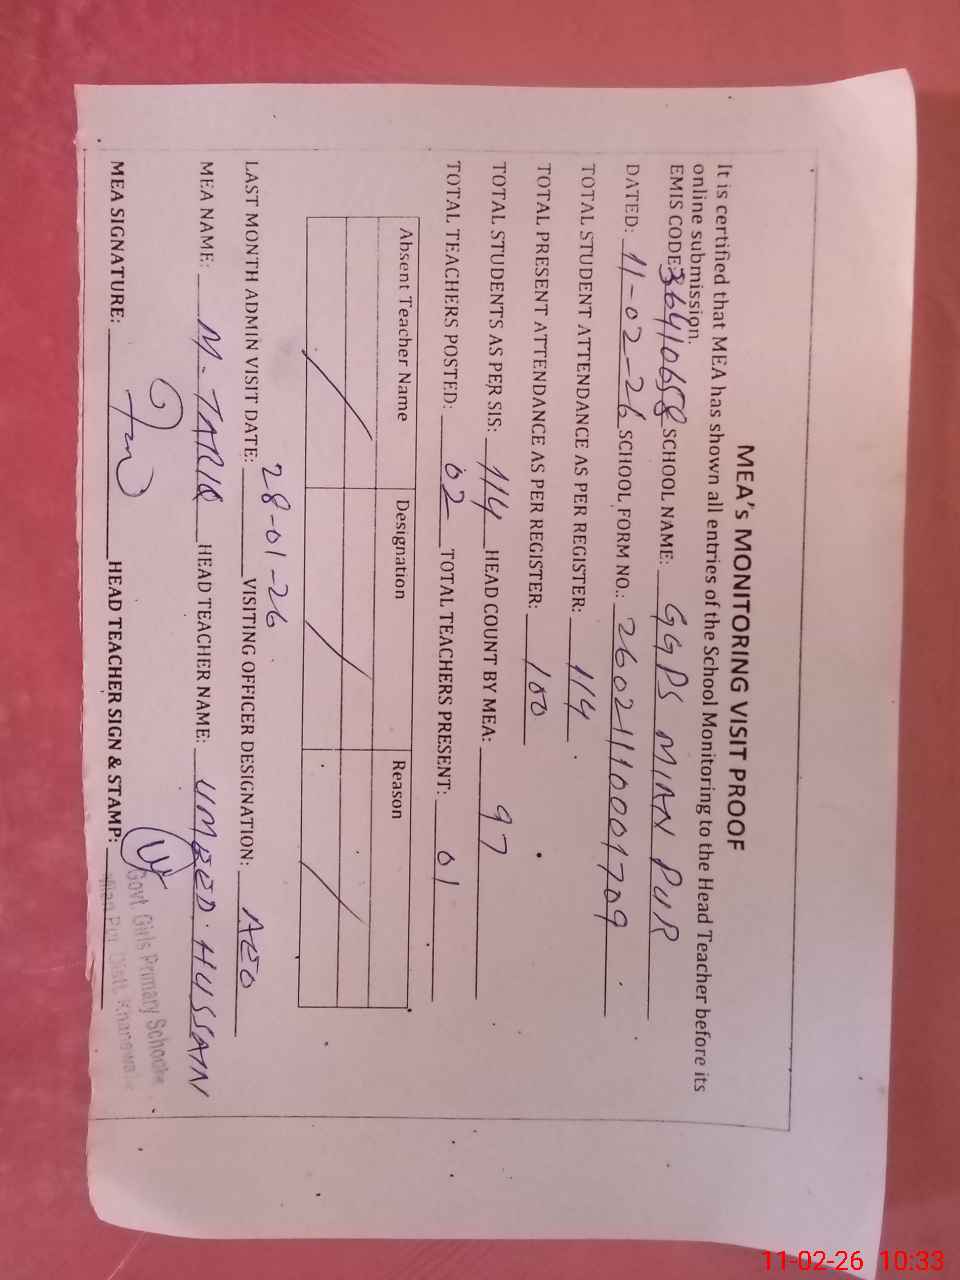 MEA's MONITORING VISIT PROOF
It is certified that MEA has shown all entries of the School Monitoring to the Head Teacher before its
online submission.
EMIS CODE 36410658 SCHOOL NAME: GGPS MIAN PUR
DATED: 11-02-26 SCHOOL FORM NO.: 26021110001709
TOTAL STUDENT ATTENDANCE AS PER REGISTER: 114
TOTAL PRESENT ATTENDANCE AS PER REGISTER: 100
TOTAL STUDENTS AS PER SIS: 114 HEAD COUNT BY MEA: 97
TOTAL TEACHERS POSTED: 02 TOTAL TEACHERS PRESENT: 01
Absent Teacher Name Designation Reason
LAST MONTH ADMIN VISIT DATE: 28-01-26 VISITING OFFICER DESIGNATION: AEO
MEA NAME: M. TARIQ HEAD TEACHER NAME: UMEED HUSSAIN
MEA SIGNATURE: HEAD TEACHER SIGN & STAMP:
Govt. Girls Primary School
Mian Pur Distt. Khanewal
11-02-26 10:33